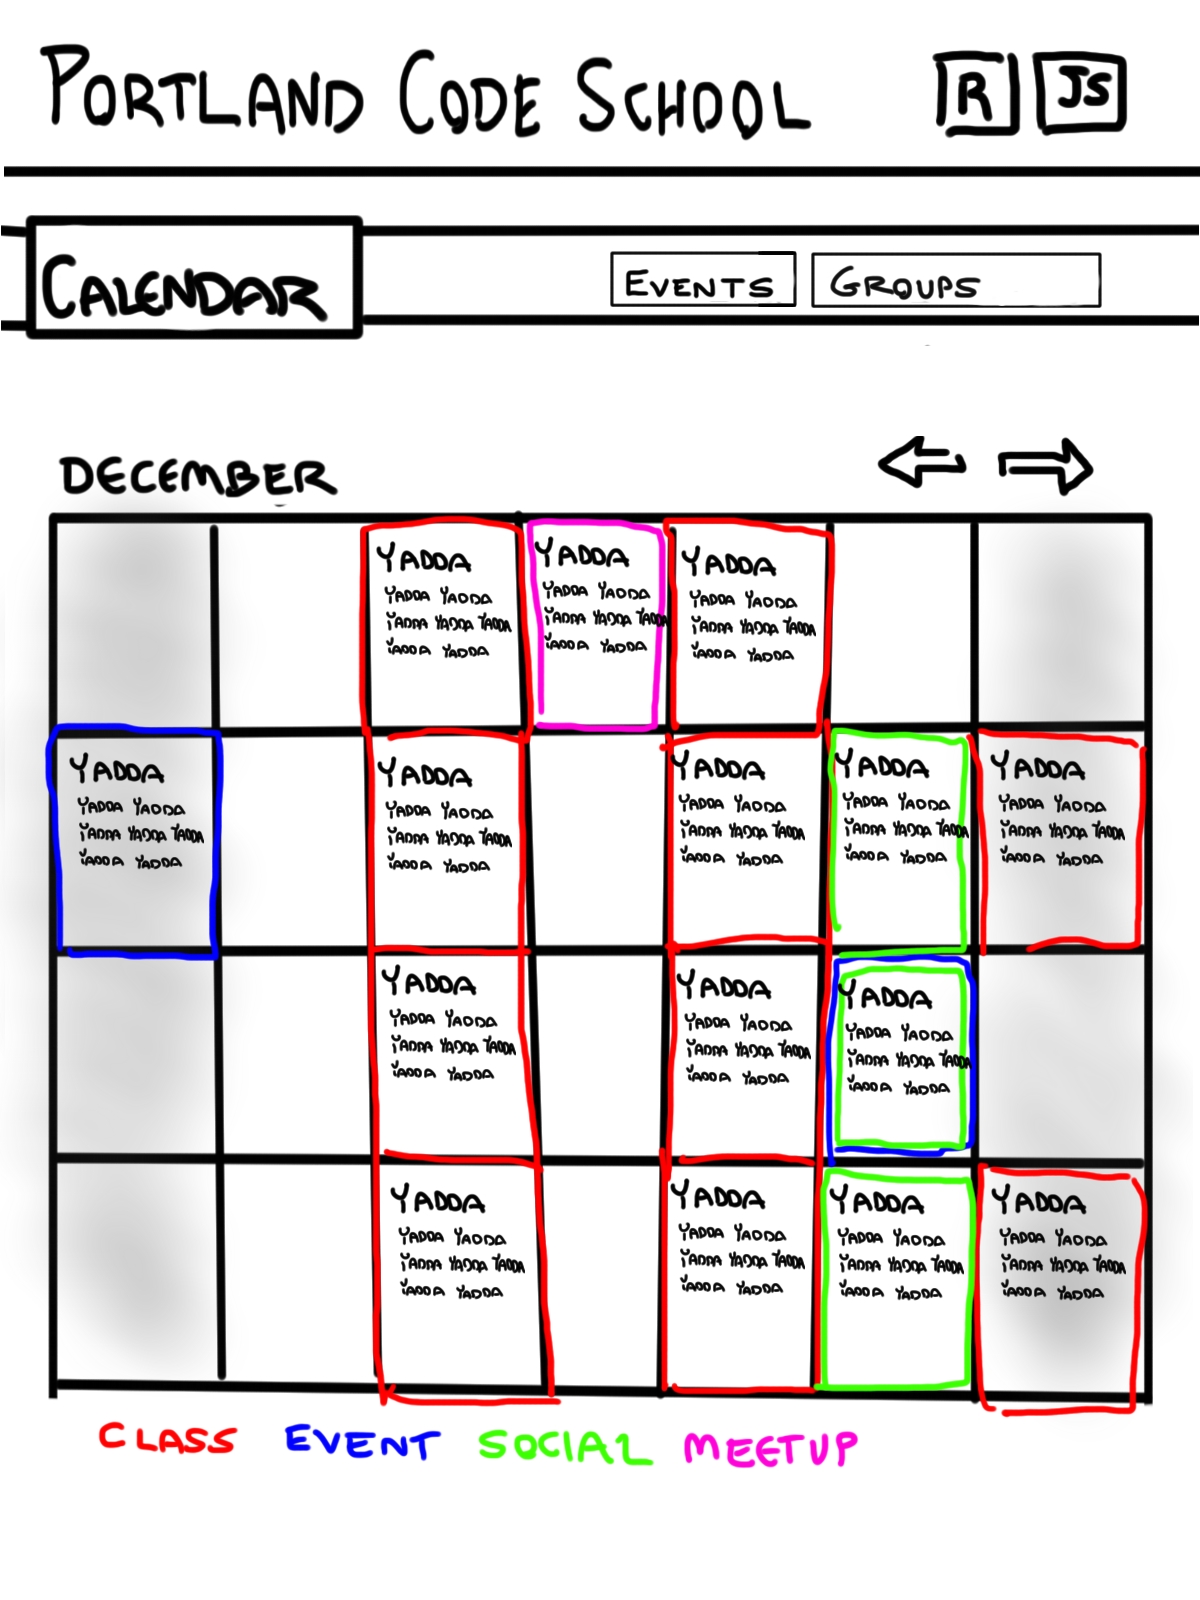 PORTLAND CODE SCHOOL
R
JS
CALENDAR
EVENTS
GROUPS
DECEMBER
YADDA
YADDA YADDA
YADDA YADDA YADDA
YADDA YADDA
YADDA
YADDA YADDA
YADDA YADDA YADDA
YADDA YADDA
YADDA
YADDA YADDA
YADDA YADDA YADDA
YADDA YADDA
YADDA
YADDA YADDA
YADDA YADDA YADDA
YADDA YADDA
YADDA
YADDA YADDA
YADDA YADDA YADDA
YADDA YADDA
YADDA
YADDA YADDA
YADDA YADDA YADDA
YADDA YADDA
YADDA
YADDA YADDA
YADDA YADDA YADDA
YADDA YADDA
YADDA
YADDA YADDA
YADDA YADDA YADDA
YADDA YADDA
YADDA
YADDA YADDA
YADDA YADDA YADDA
YADDA YADDA
YADDA
YADDA YADDA
YADDA YADDA YADDA
YADDA YADDA
YADDA
YADDA YADDA
YADDA YADDA YADDA
YADDA YADDA
YADDA
YADDA YADDA
YADDA YADDA YADDA
YADDA YADDA
YADDA
YADDA YADDA
YADDA YADDA YADDA
YADDA YADDA
YADDA
YADDA YADDA
YADDA YADDA YADDA
YADDA YADDA
YADDA
YADDA YADDA
YADDA YADDA YADDA
YADDA YADDA
CLASS EVENT SOCIAL MEETUP